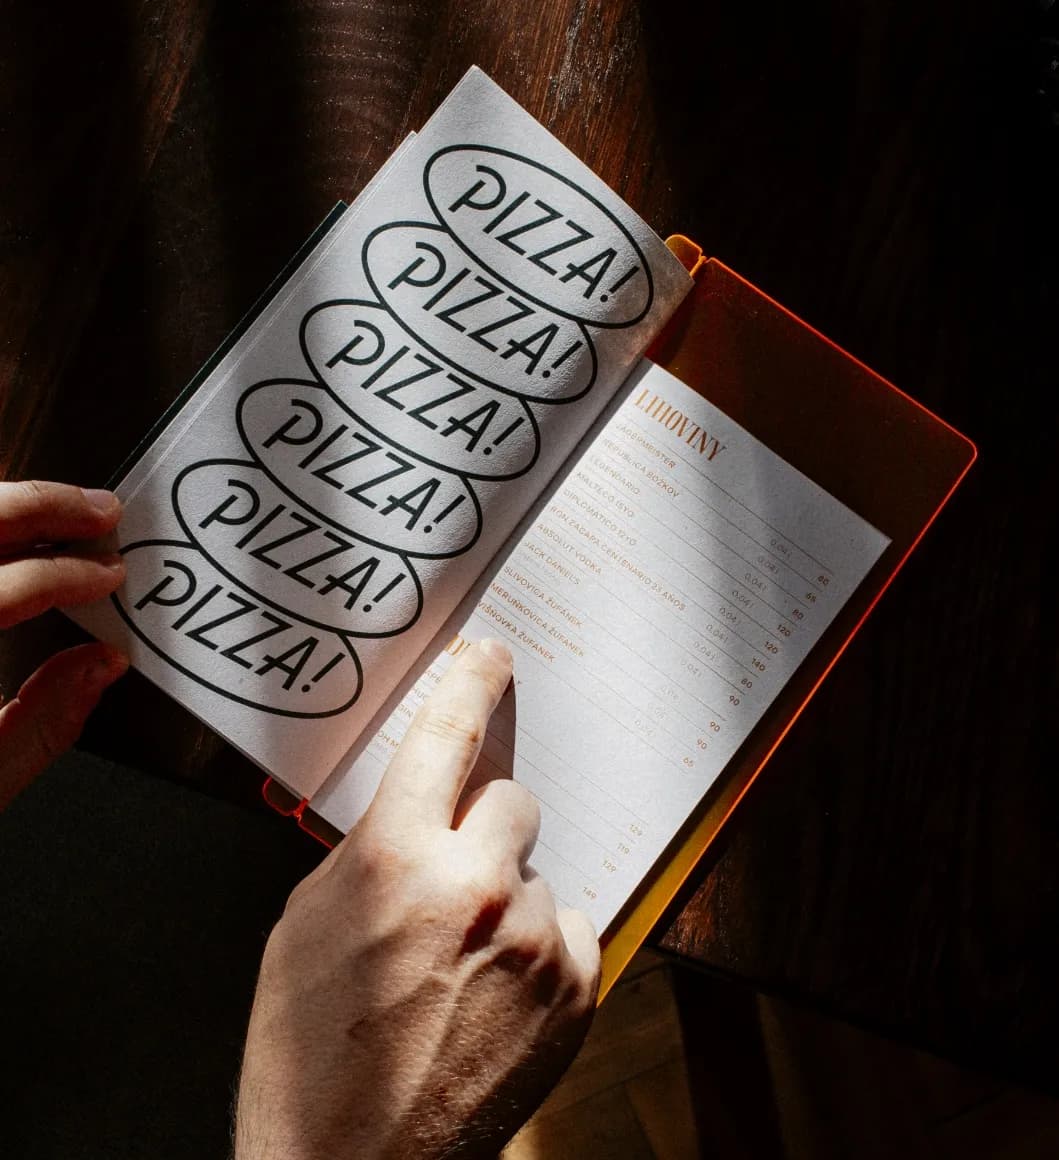 PIZZA!
PIZZA!
PIZZA!
PIZZA!
PIZZA!
PIZZA!
LIHOVINY
JÄGERMEISTER 0,04 l 65
REPUBLICA BOŽKOV 0,04 l 65
LEGENDARIO 0,04 l 80
MALTECO 15YO 0,04 l 120
DIPLOMATICO 12YO 0,04 l 140
RON ZACAPA CENTENARIO 23 AÑOS 0,04 l
ABSOLUT VODKA 80
JACK DANIEL'S 90
SLIVOVICA ŽUFÁNEK 90
MERUŇKOVICA ŽUFÁNEK 90
VIŠŇOVKA ŽUFÁNEK 65
129
119
GIN 129
149